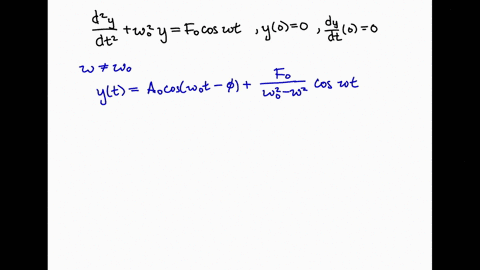 d²y/dt² + ω₀² y = F₀ cos ωt , y(0)=0 , dy/dt (0)=0
ω ≠ ω₀
y(t) = A₀ cos(ω₀t − ϕ) + F₀/(ω₀² − ω²) cos ωt